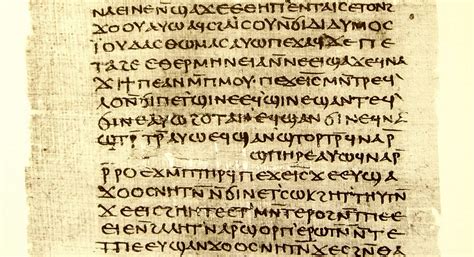 ⲛⲁⲉⲓⲛⲉⲛ̄ϣⲁϫⲉⲉⲑⲏⲡⲉⲛⲧⲁⲓ̅ⲥ̅ⲉⲧⲟⲛϩ
ϫⲟⲟⲩⲁⲩⲱⲁϥⲥϩⲁⲓ̈ⲥⲟⲩⲛ̄ϭⲓⲇⲓⲇⲩⲙⲟⲥ
ⲓ̈ⲟⲩⲇⲁⲥⲑⲱⲙⲁⲥⲁⲩⲱⲡⲉϫⲁϥϫⲉⲡⲉ
ⲧⲁϩⲉⲉⲑⲉⲣⲙⲏⲛⲉⲓⲁⲛ̄ⲛⲉⲉⲓϣⲁϫⲉϥⲛⲁ
ϫⲓϯⲡⲉⲁⲛⲙ̄ⲡⲙⲟⲩⲡⲉϫⲉⲓ̅ⲥ̅ⲙⲛ̄ⲧⲣⲉϥ
ⲗⲟⲛ̄ϭⲓⲡⲉⲧϣⲓⲛⲉⲉϥϣⲓⲛⲉϣⲁⲛⲧⲉϥ
ϭⲓⲛⲉⲁⲩⲱϩⲟⲧⲁⲛⲉϥϣⲁⲛϭⲓⲛⲉϥⲛⲁ
ϣⲧⲣ̄ⲧⲣ̄ⲁⲩⲱⲉϥϣⲁⲛϣⲧⲟⲣⲧⲣ̄ϥⲛⲁⲣ̄
ϣⲡⲏⲣⲉⲁⲩⲱϥⲛⲁⲣ̄
ⲣ̄ⲣⲟⲉϫⲙ̄ⲡⲧⲏⲣϥⲡⲉϫⲉⲓ̅ⲥ̅ϫⲉⲉⲩϣⲁ
ϫⲟⲟⲥⲛⲏⲧⲛ̄ⲛ̄ϭⲓⲛⲉⲧⲥⲱⲕϩⲏⲧⲧⲏⲩⲧⲛ̄
ϫⲉⲉⲓⲥϩⲏⲏⲧⲉⲉⲧⲙⲛ̄ⲧⲉⲣⲟϩⲛ̄ⲧⲡⲉ
ⲉⲉⲓⲉⲛ̄ϩⲁⲗⲏⲧⲛⲁⲣ̄ϣⲟⲣⲡⲉⲣⲱⲧⲛ̄ⲛ̄ⲧⲉ
ⲧⲡⲉⲉⲩϣⲁⲛϫⲟⲟⲥⲛⲏⲧⲛ̄ϫⲉⲥϩⲛ̄ⲑⲁ